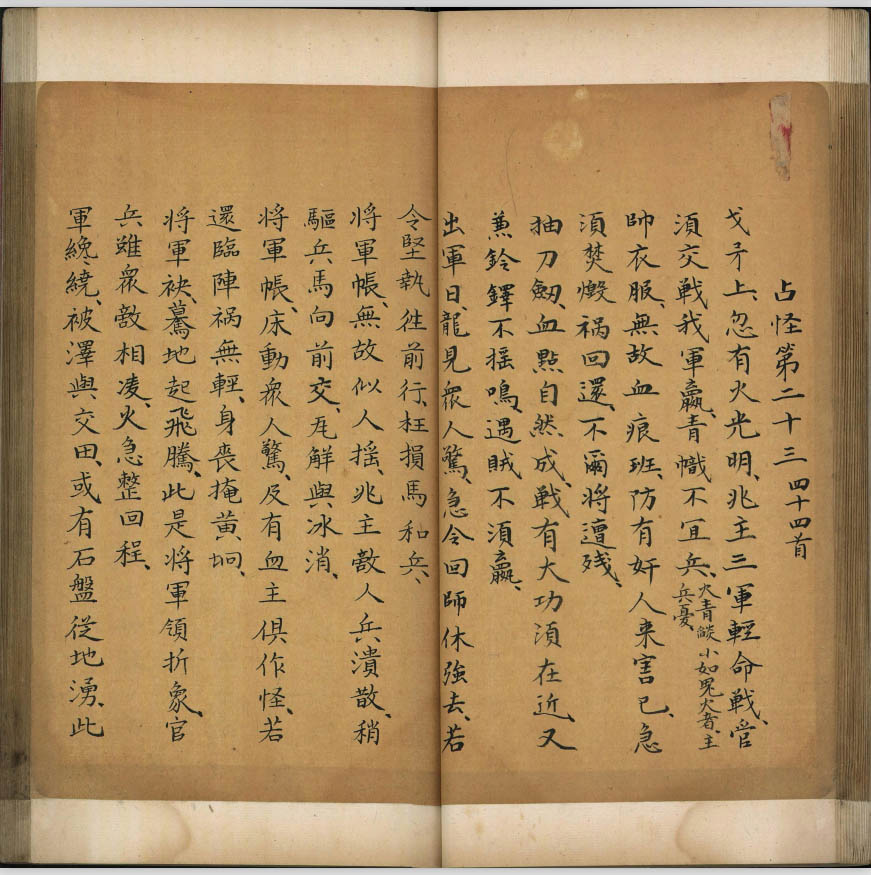 占怪第二十三 四十四首
戈矛上、忽有火光明、兆主三軍輕命戰、管
須交戰我軍贏、青幟不宜兵、火青燄小如鬼火者、主兵憂、
帥衣服、無故血痕班、防有奸人来害己、急
須焚燬祸回還、不爾将遭残、
抽刀劔、血點自然成、戰有大功須在近、又
兼鈴鐸不摇鳴、遇賊不須贏、
出軍日、龍見衆人驚、急令回師休強去、若
令堅執徃前行、枉損馬和兵、
将軍帳、無故似人摇、兆主敵人兵潰散、稍
驅兵馬向前交、瓦解與冰消、
将軍帳、床動衆人驚、及有血主俱作怪、若
還臨陣祸無輕、身喪掩黄坰、
将軍袂、驀地起飛騰、此是将軍領折象、官
兵雖衆敵相凌、火急整回程、
軍纔繞、被澤與交田、或有石盤從地湧、此